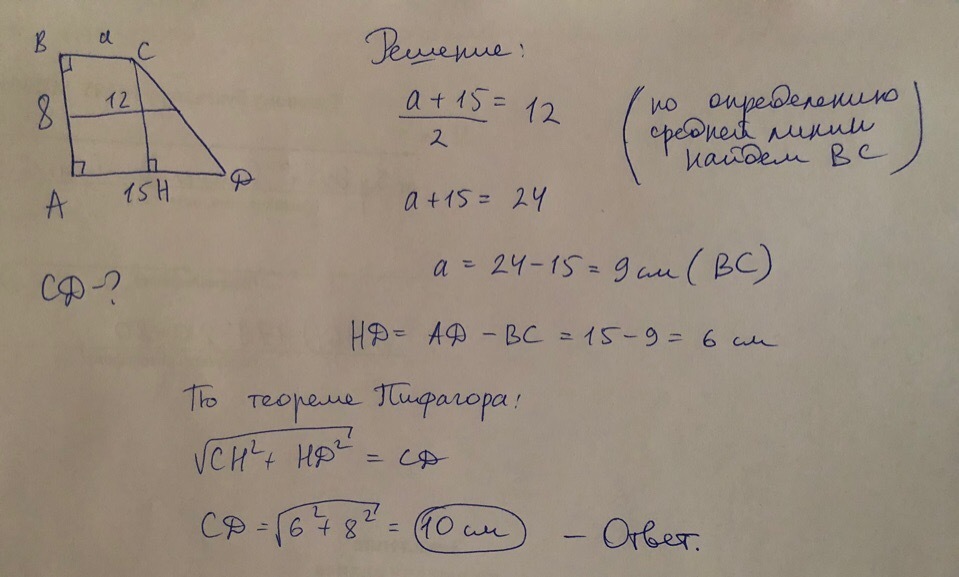 B a C
8 12
A 15 H D
CD-?
Решение:
a + 15
2
= 12
(по определению
средней линии
найдем BC)
a+15 = 24
a = 24-15 = 9 см (BC)
HD = AD - BC = 15-9 = 6 см
По теореме Пифагора:
√CH²+ HD² = CD
CD = √6²+ 8² = 10 см - Ответ.